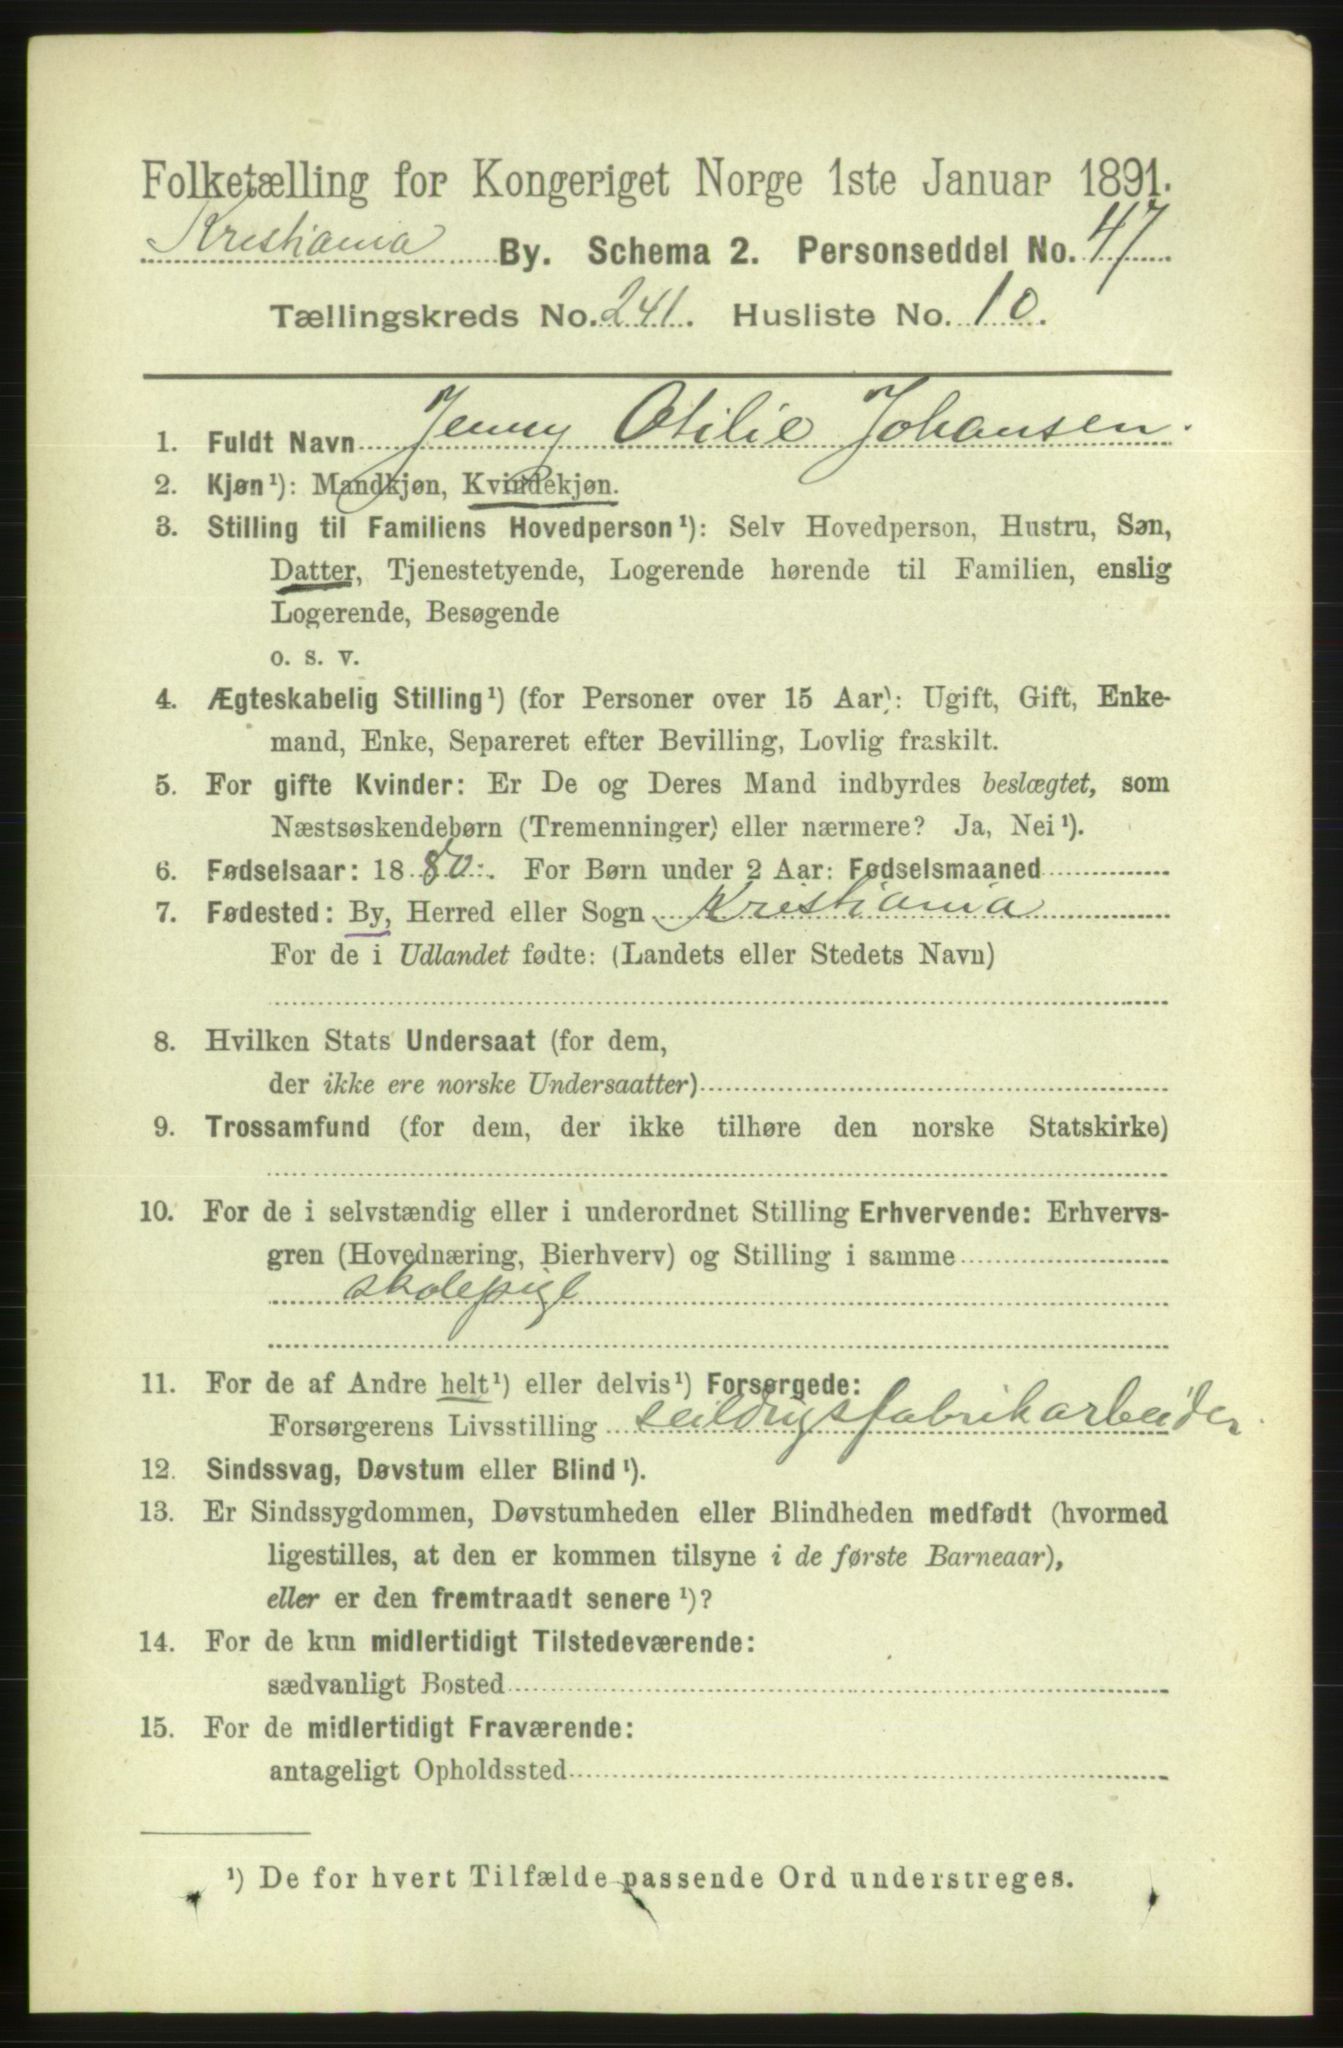 Folketælling for Kongeriget Norge 1ste Januar 1891.
Kristiania By. Schema 2. Personseddel No. 47
Tællingskreds No. 241. Husliste No. 10.
1. Fuldt Navn Jenny Otilie Johansen.
2. Kjøn¹): Mandkjøn, Kvindekjøn.
3. Stilling til Familiens Hovedperson¹): Selv Hovedperson, Hustru, Søn,
Datter, Tjenestetyende, Logerende hørende til Familien, enslig
Logerende, Besøgende
o. s. v.
4. Ægteskabelig Stilling¹) (for Personer over 15 Aar): Ugift, Gift, Enke-
mand, Enke, Separeret efter Bevilling, Lovlig fraskilt.
5. For gifte Kvinder: Er De og Deres Mand indbyrdes beslægtet, som
Næstsøskendebørn (Tremenninger) eller nærmere? Ja, Nei¹).
6. Fødselsaar: 1880. For Børn under 2 Aar: Fødselsmaaned
7. Fødested: By, Herred eller Sogn Kristiania
For de i Udlandet fødte: (Landets eller Stedets Navn)
8. Hvilken Stats Undersaat (for dem,
der ikke ere norske Undersaatter)
9. Trossamfund (for dem, der ikke tilhøre den norske Statskirke)
10. For de i selvstændig eller i underordnet Stilling Erhvervende: Erhvervs-
gren (Hovednæring, Bierhverv) og Stilling i samme
skolepige
11. For de af Andre helt¹) eller delvis¹) Forsørgede:
Forsørgerens Livsstilling seildugsfabrikarbeider
12. Sindssvag, Døvstum eller Blind¹).
13. Er Sindssygdommen, Døvstumheden eller Blindheden medfødt (hvormed
ligestilles, at den er kommen tilsyne i de første Barneaar),
eller er den fremtraadt senere¹)?
14. For de kun midlertidigt Tilstedeværende:
sædvanligt Bosted
15. For de midlertidigt Fraværende:
antageligt Opholdssted
¹) De for hvert Tilfælde passende Ord understreges.